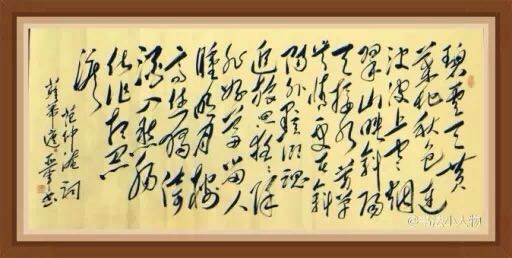 碧云天黄
葉地秋色连
波波上寒烟
翠山映斜陽
天接水芳草
无情更在斜
陽外黯鄉魂
追旅思夜夜除
非好夢留人
睡明月楼
高休獨倚
酒入愁肠
化作相思
淚
范仲淹詞
蘇幕遮 書
@书法小人物